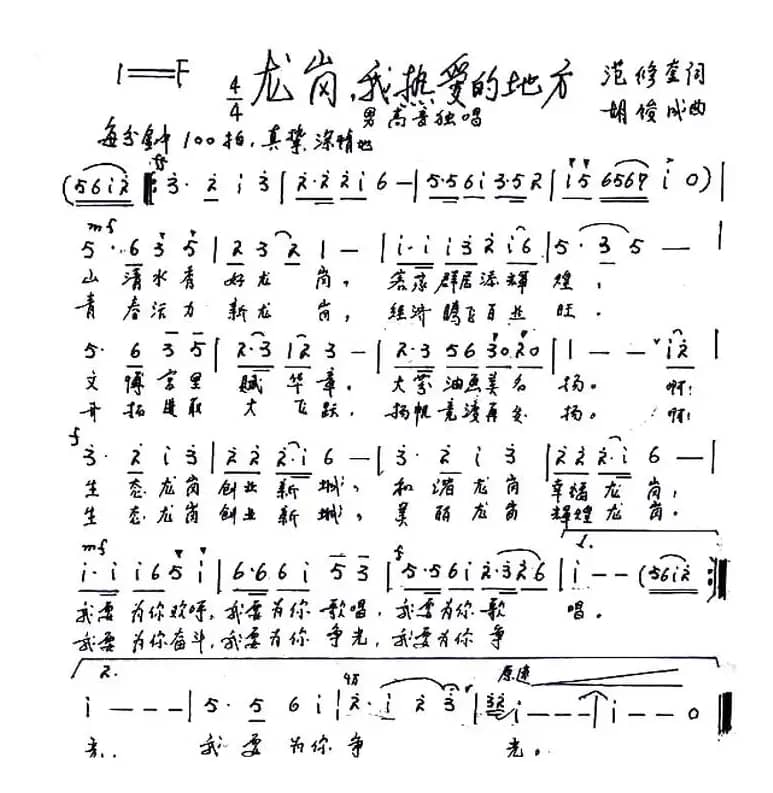 1=F 4/4 龙岗,我热爱的地方 范修奎词
男高音独唱 胡俊成曲
每分钟100拍,真挚、深情地
ff
(5612 3· 2 1 3 | 2·2 21 6 — | 5·5 61 3·5 2 | 15 6567 1 0) |
mf
5· 6 3 5 | 2 3 2 1 — | 1·1 13 2 16 | 5· 3 5 — |
山清水秀好龙岗, 客家群居添辉煌,
青春活力新龙岗, 经济腾飞百业旺.
5· 6 3 5 | 2·3 12 3 — | 2·3 56 30 20 | 1 — — 12 |
文博宫里赋华章. 大芬油画美名扬。 啊!
开拓进取大飞跃, 扬帆竞渡再发扬。 啊!
f
3· 2 1 3 | 2 2 2·1 6 — | 3· 2 1 3 | 2 2 2·1 6 — |
生态龙岗创业新城, 和谐龙岗幸福龙岗,
生态龙岗创业新城, 美丽龙岗辉煌龙岗。
mf f 1.
1·1 16 5 1 | 6·6 61 5 3 | 5·5 61 2·3 26 | 1 — — (5612 :|
我要为你欢呼,我要为你歌唱,我要为你歌 唱。
我要为你奋斗,我要为你争光,我要为你争
2. 原速
1 — — — | 5· 5 6 1 | 2· 1 2 3 | 32 1 — — — | 1 — — 0 |
光. 我要为你争 光。